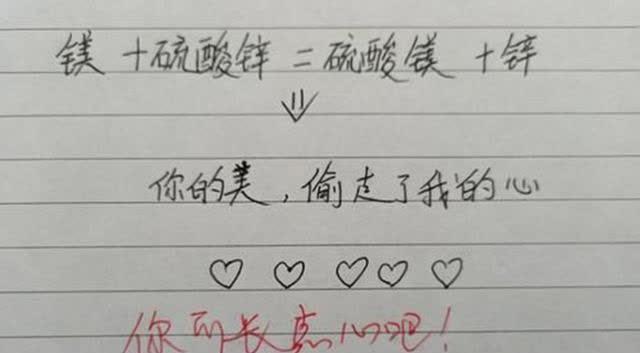 镁+硫酸锌=硫酸镁+锌
⇓
你的美,偷走了我的心
♡ ♡ ♡ ♡ ♡
你可长点心吧!